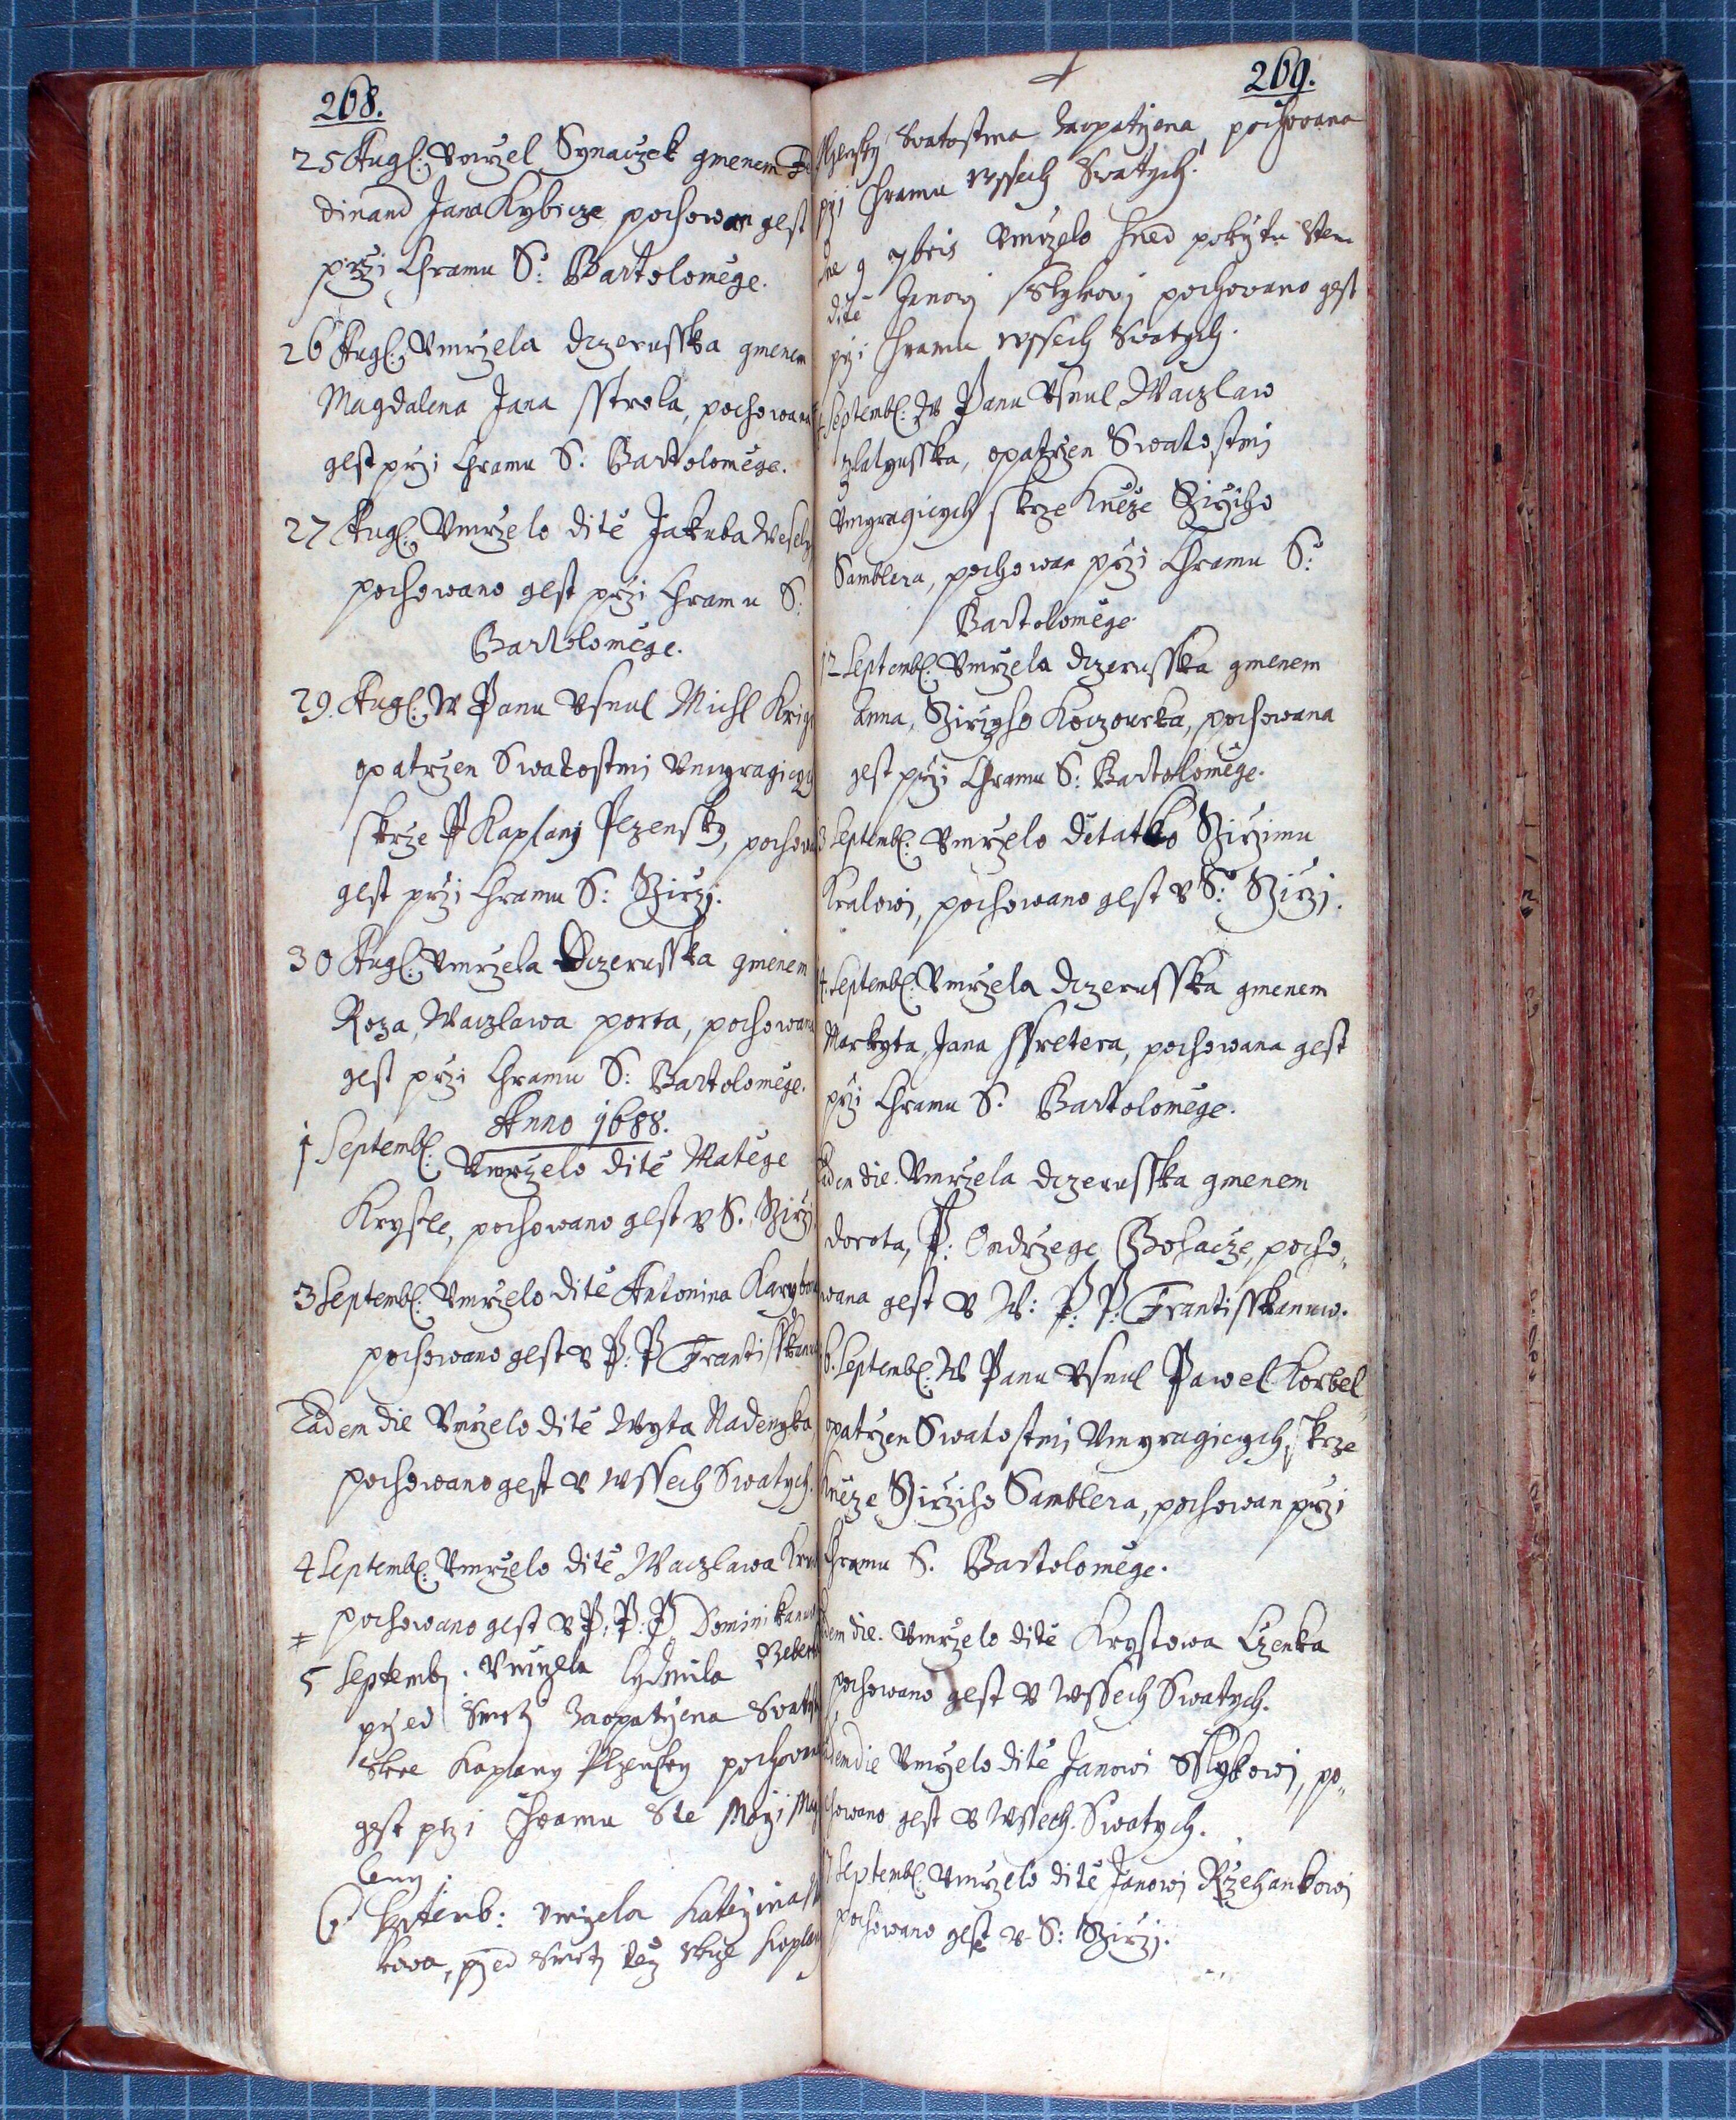 268.
25 Augl: Vmrzel Synaczek gmenem Fe
dinand Jana Kybicze pochowan gest
przi Chramu S: Bartoloměge.
26 Augl: Vmrzela dczerusska gmenem
Magdalena Jana sstrola, pochowana
gest przi Chramu S: Bartoloměge.
27 Augl: Vmrzelo ditě Jakuba Wesely
pochowano gest przi Chramu S:
Bartolomege.
29. Augl: W Panu Vsnul Michl
opatrzen Swatostmi Vmyragiczy
skrze P Kaplanj Plzensky, pochowan
gest przi Chramu S: Girzj.
30 Augl: Vmrzela dczerusska gmenem
Roza, Waczlawa porta, pochowana
gest przi Chramu S: Bartolomege.
Anno 1688.
1 Septembl: Vmrzelo ditě Matěge
Krystle, pochowano gest v S. Girzj.
3 Septembl: Vmrzelo ditě Antonina
pochowano gest v P: P Frantisskanu
Eadem die Vmrzelo ditě Wyta Nadenyka,
pochowano gest v Wssech Swatych.
4 Septembl: Vmrzelo ditě Waczlawa
pochowano gest v P: P: P Dominikanu
5 Septemb: Vmrzela lydmila
przed Smrtj zaopatrzena Swatost
skrze Kaplany Plzensky pochowana
gest przi Chramu Ste Marzi Mag
leny:
6 Septemb: Vmrzela Katerzina
kowa, przed Smrtj tez skrze Kaplan
269.
Plzensky Swatostma zaopatrzena, pochowana
przi Chramu Wssech Swatych.
9 7bris Vmrzelo hned pokrztu
ditě Janowj Sslykowj pochowano gest
przi Chramu Wssech Swatych.
Septembl: W Panu Vsnul Waczlaw
zlatnusska, opatrzen Swatostmi
Vmyragicych skrze Kněze Girziho
Samblera, pochowan przi Chramu S:
Bartolomege.
12 Septembl: Vmrzela dczerusska gmenem
Anna, Girzyho Koczourka, pochowana
gest przi Chramu S: Bartolomege.
3 Septembl: Vmrzelo dětatko Girzimu
Kralowi, pochowano gest v S: Girzj.
4. Septembl: Vmrzela dczerusska gmenem
Markyta, Jana ssretera, pochowana gest
przi Chramu S: Bartolomege.
Eadem die. Vmrzela dczerusska gmenem
dorota, P: Ondrzege Bohacze, pocho,
wana gest v W: P: P: Frantisskanuw.
6. Septembl: W Panu Vsnul Pawel Korbel
opatrzen Swatostmi Vmyragicych, skrze
Kněze Girziho Samblera, pochowan przi
Chramu S. Bartolomege.
Eadem die. Vmrzelo ditě Krystowa Czenka
pochowano gest v Wssech Swatych.
Eadem die Vmrzelo ditě Janowi Sslykowj, po,
chowano gest v Wssech Swatych.
7 Septembl: Vmrzelo ditě Janowj Rzehankowj
pochowano gest v S: Girzj.